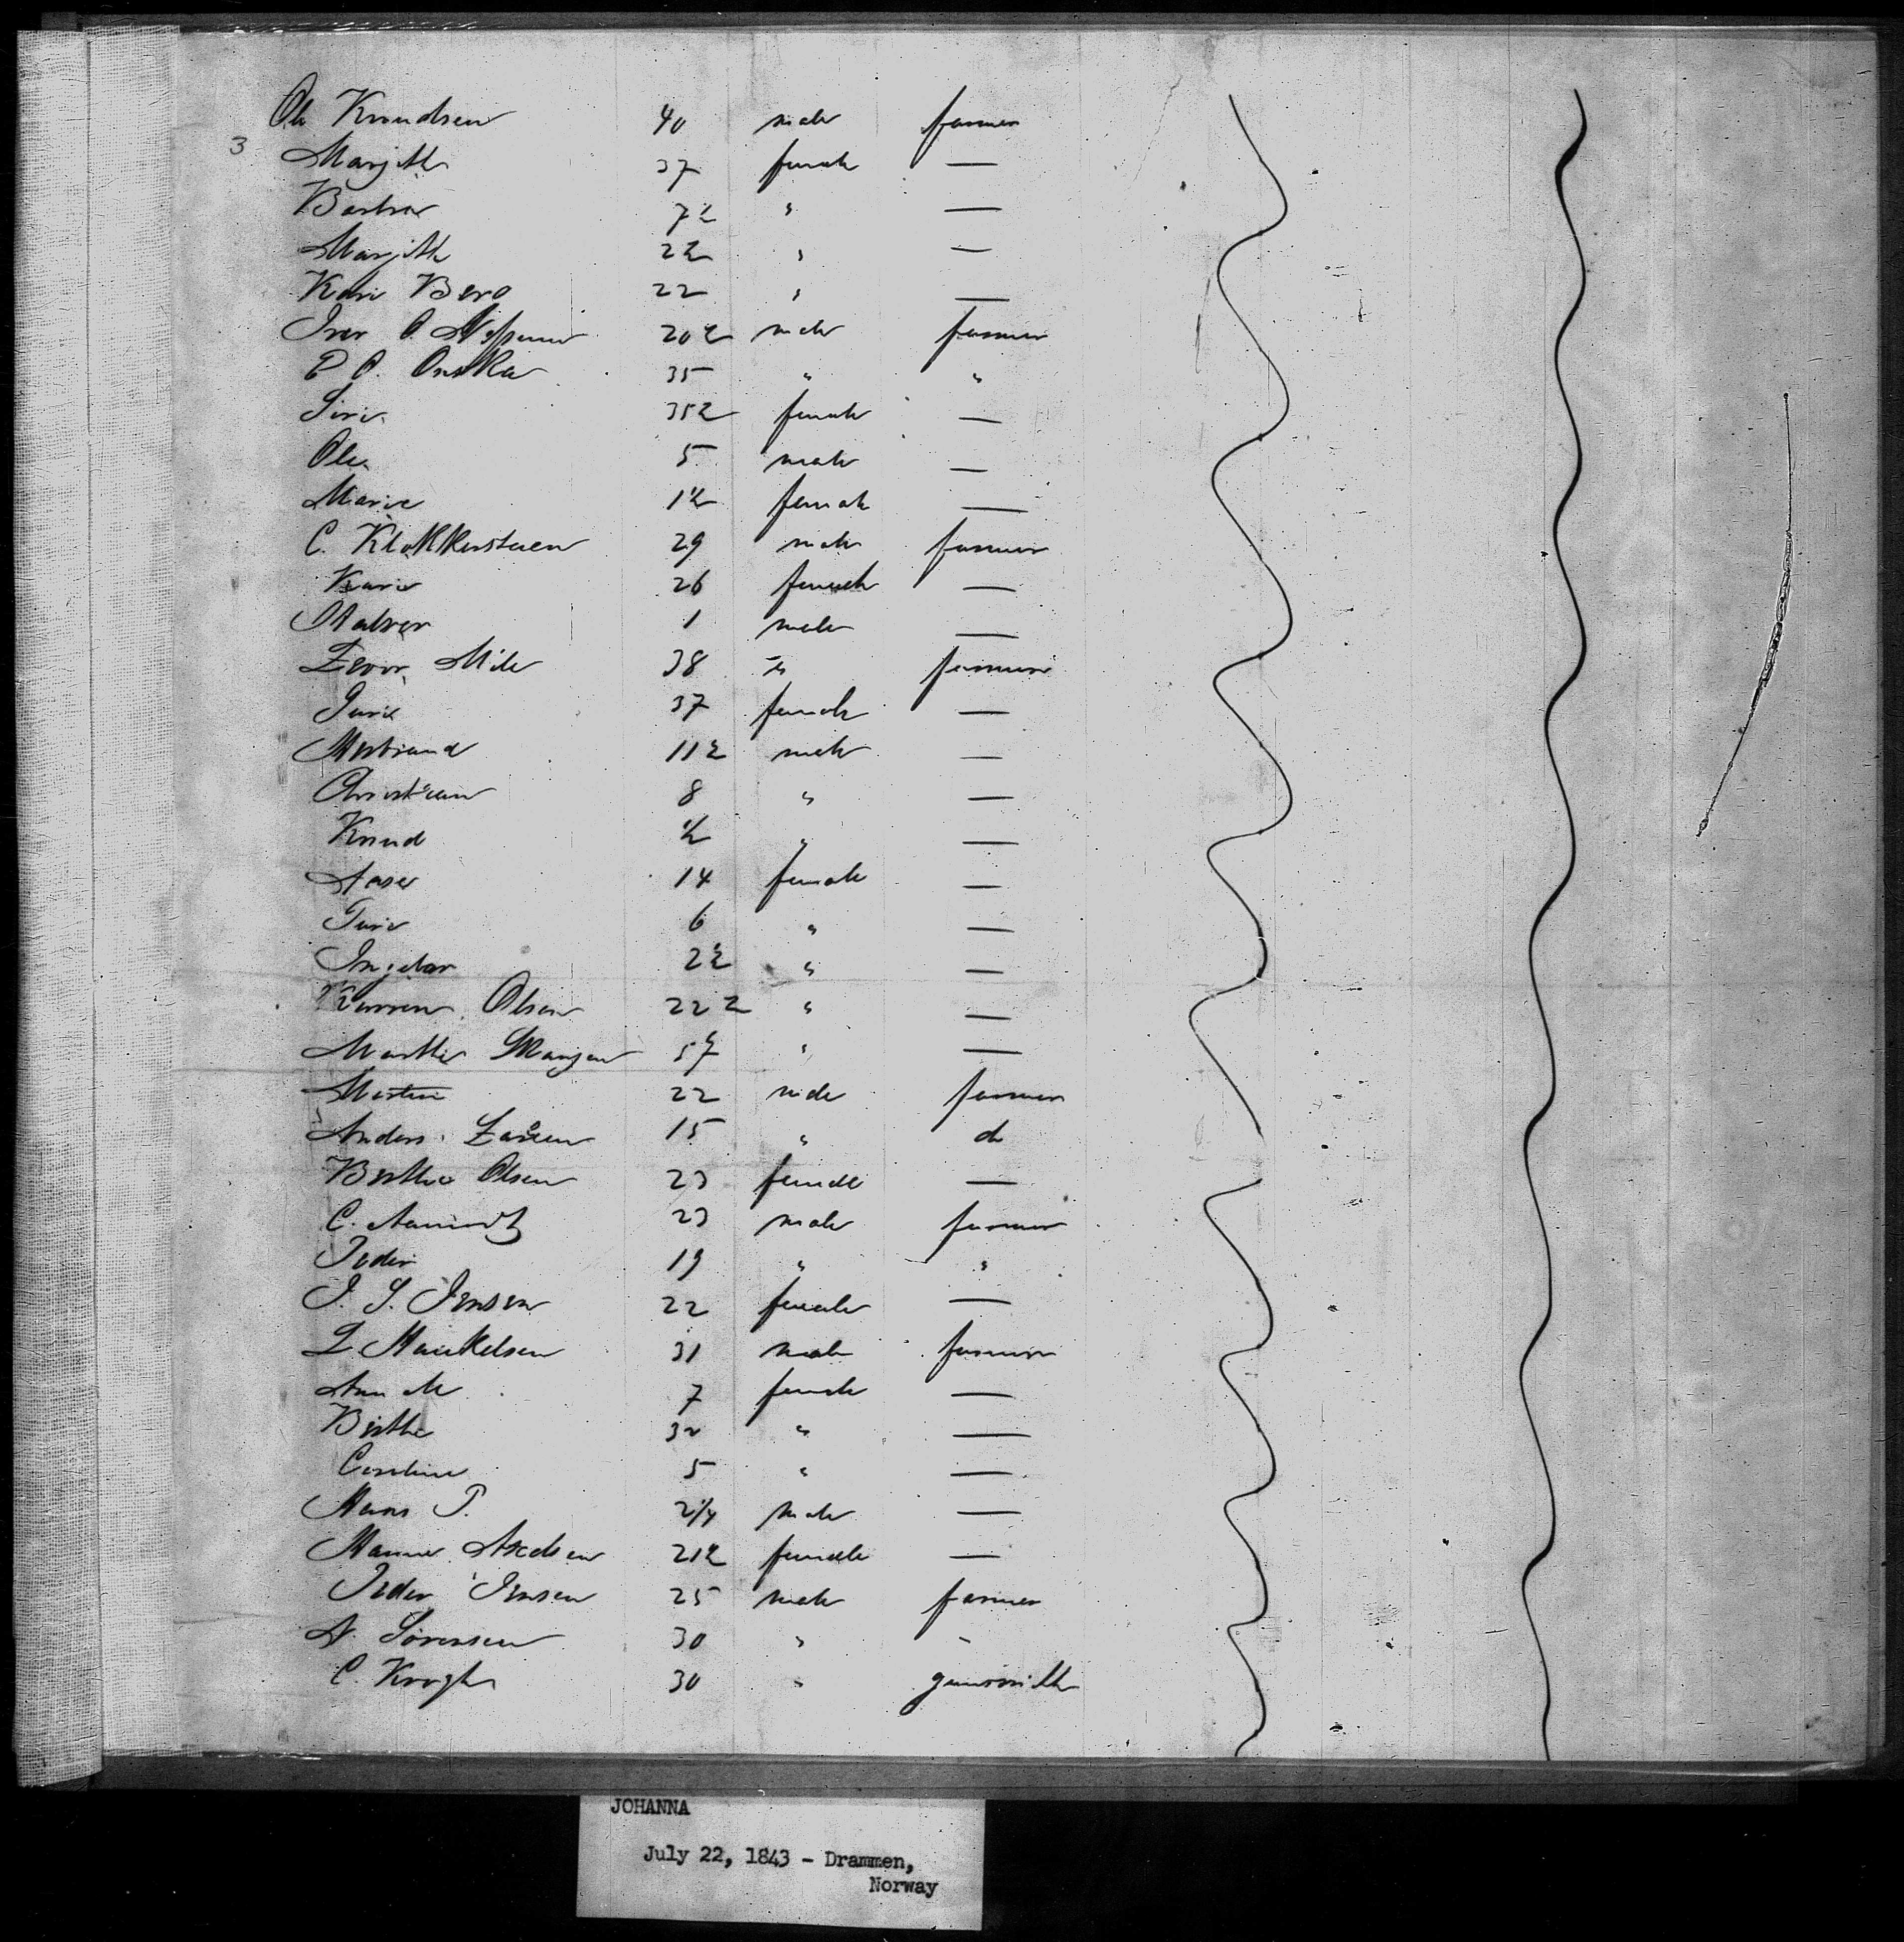 Ole Knudsen 40 male farmer
3 Margith 37 female —
Barbra 7½ " —
Margith 2½ " —
Kari Berg 22 " —
Iver O. 20½ male farmer
P O. 35 " "
Siri 35½ female —
Ole 5 male —
Marie 1½ female —
C. Klokkerstuen 29 male farmer
Kari 26 female —
Halvor 1 male —
38 farmer
Guri 37 female —
Herbrand 11½ male —
Christian 8 " —
Knud ½ " —
Aase 14 female —
Guri 6 " —
Ingebor 2½ " —
Karren Olsen 22½ " —
Marthe 57 " —
Martin 22 male farmer
Anders 15 " do
Berthe Olsen 23 female —
C. 23 male farmer
Peder 19 " "
J. S. Jensen 22 female —
L Haukelsen 31 male farmer
Ann M 7 female —
Birthe 32 " —
Caroline 5 " —
Hans P. 2¼ male —
Hanne Axelsen 21½ female —
Peder Jensen 25 male farmer
A. Sørensen 30 " "
C. Krogh 30 " gunsmith
JOHANNA
July 22, 1843 - Drammen,
Norway